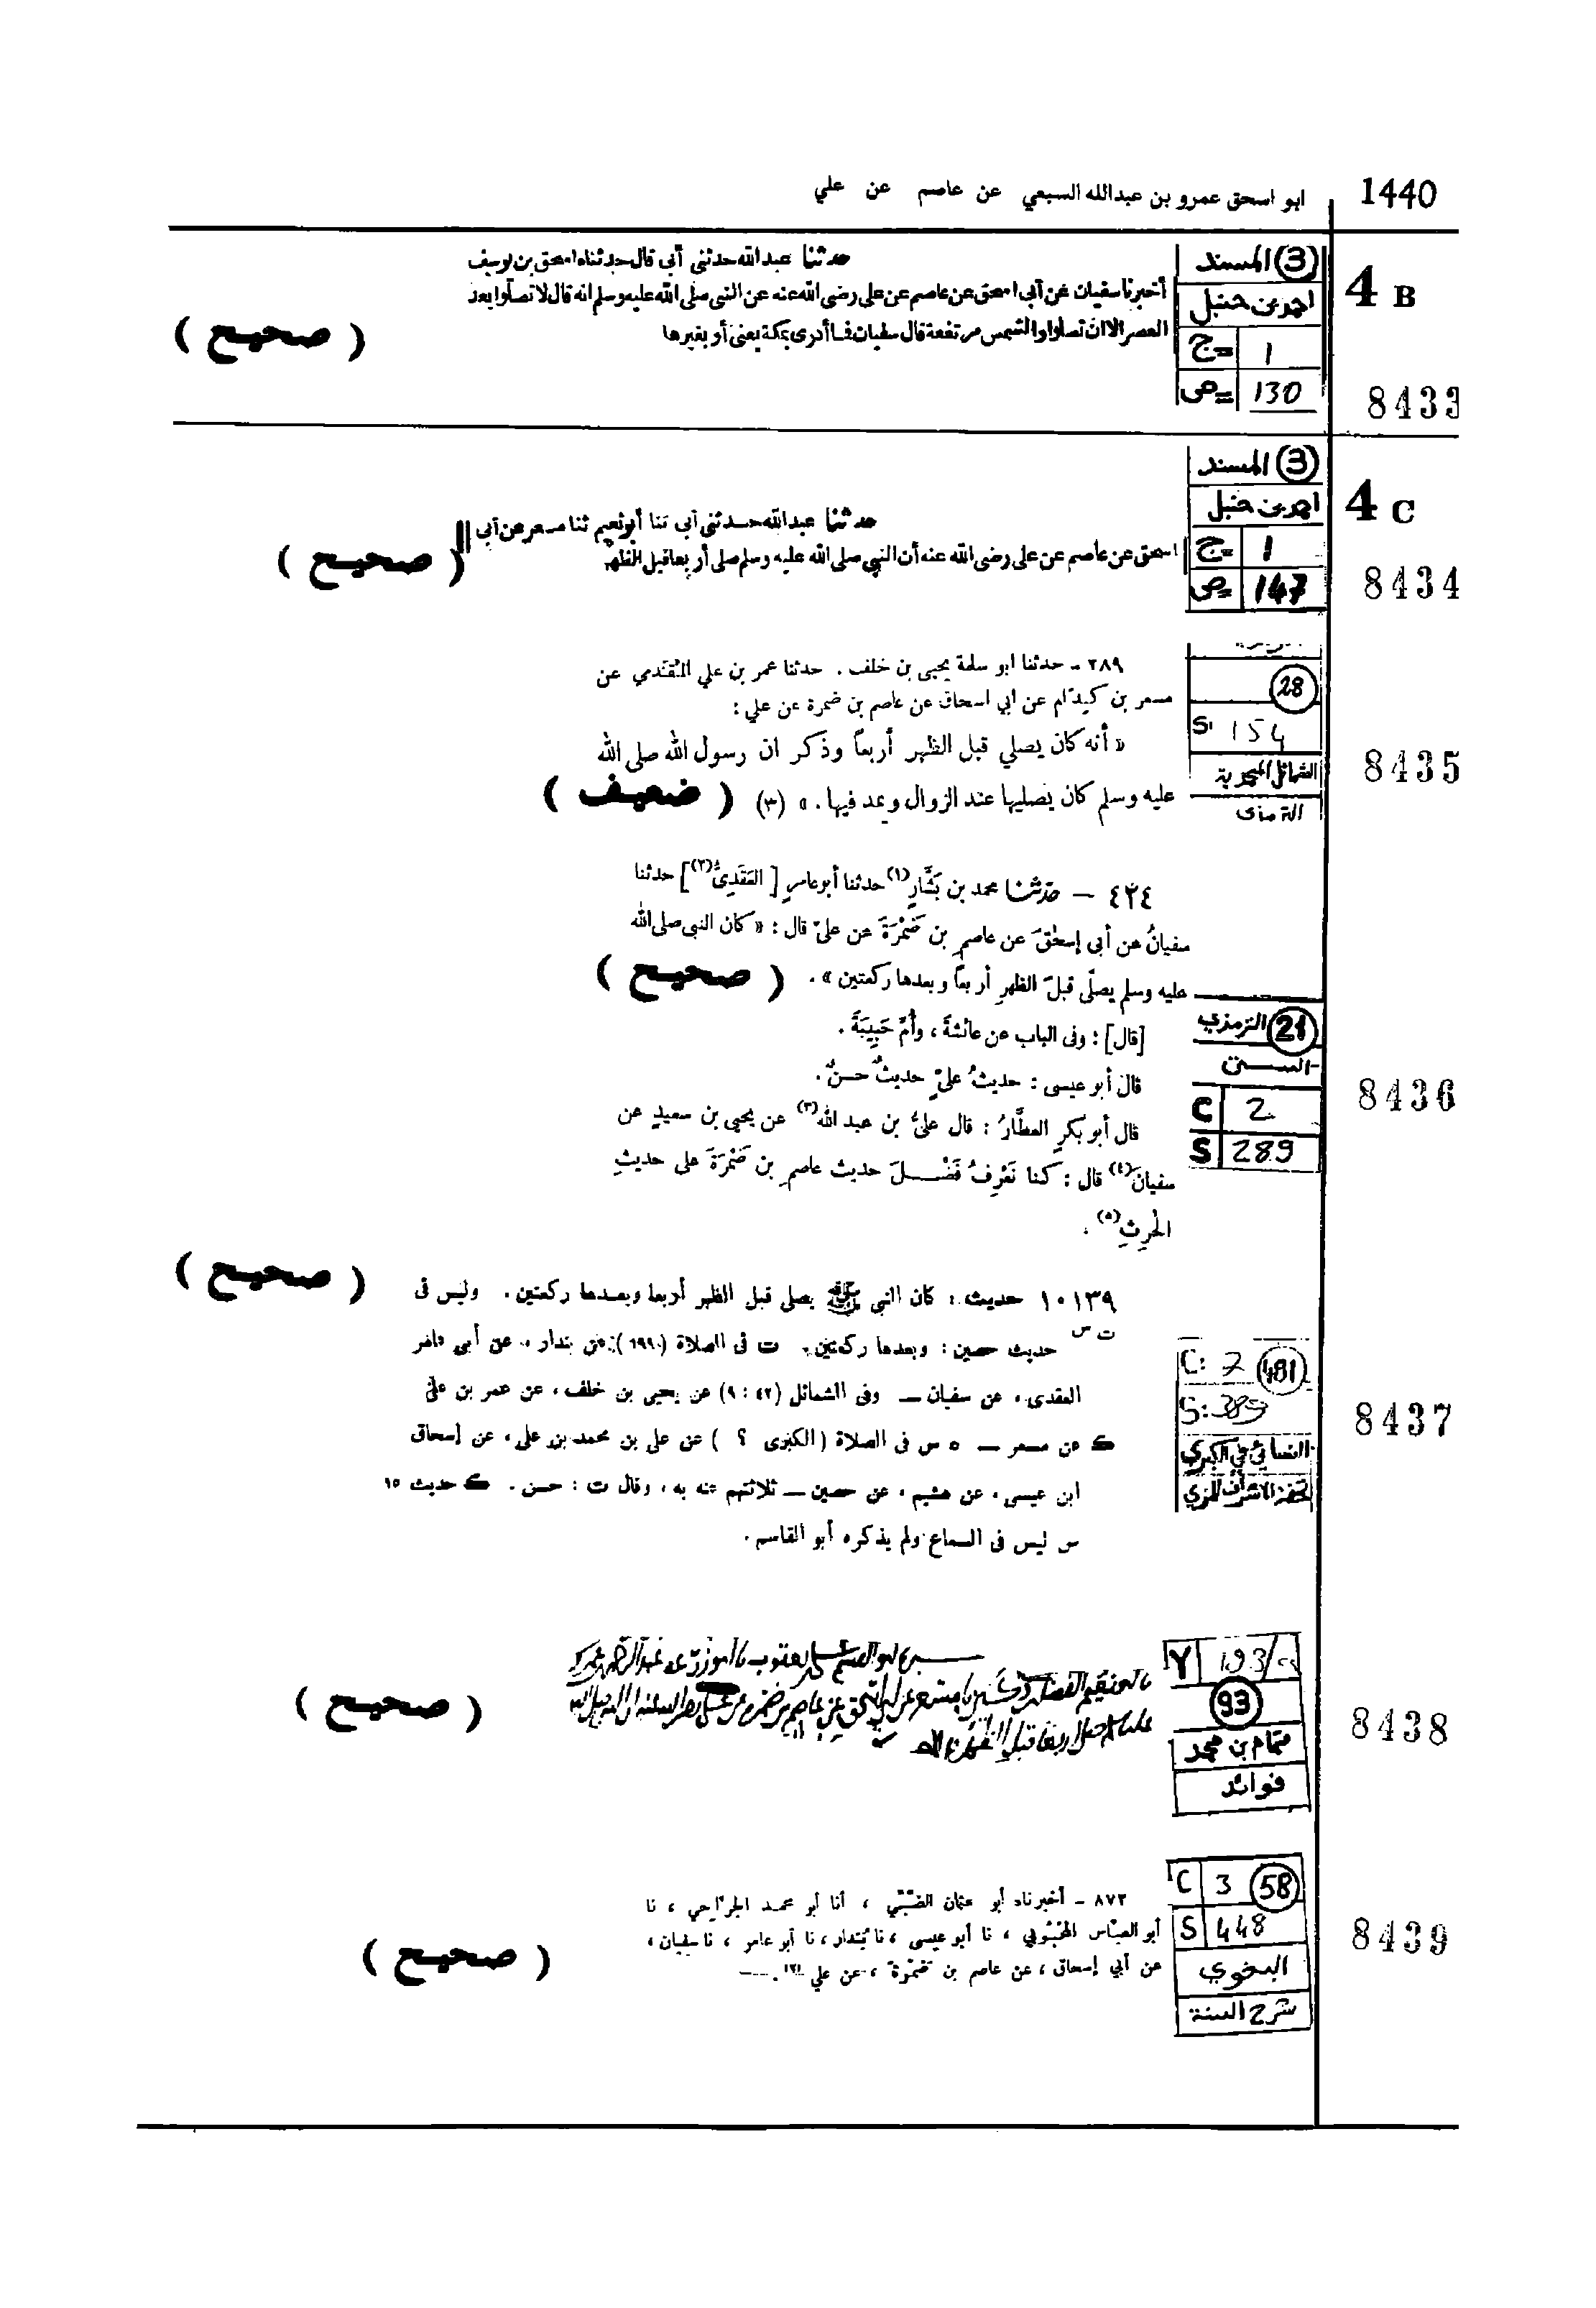 1440
ابو اسحق عمرو بن عبدالله السبعي عن عاصم عن علي
4 B
(3) المسند
احمد بن حنبل
ج= 1
ص= 130
8433
حدثنا عبد الله حدثني أبي قال حدثناه اسحق بن يوسف
أخبرنا سفيان عن أبي اسحق عن عاصم عن علي رضى الله عنه عن النبي صلى الله عليه وسلم انه قال لا تصلوا بعد
العصر الا ان تصلوا والشمس مرتفعة قال سفيان فما أدرى بمكة يعنى أو بغيرها
( صحيح )
4 C
(3) المسند
احمد بن حنبل
ج= 1
ص= 147
8434
حدثنا عبد الله حدثني أبي ثنا أبو نعيم ثنا مسعر عن أبي
اسحق عن عاصم عن على رضى الله عنه أن النبي صلى الله عليه وسلم صلى أربعا قبل الظهر
( صحيح )
28
S 154
الشمائل المحمدية
الترمذى
8435
٢٨٩ - حدثنا ابو سلمة يحيى بن خلف . حدثنا عمر بن علي المُقَدمي عن
مسعر بن كيدَام عن ابي اسحاق عن عاصم بن ضمرة عن علي :
« أنه كان يصلي قبل الظهر أربعاً وذكر ان رسول الله صلى الله
عليه وسلم كان يصليها عند الزوال ويمد فيها . » (٣) ( ضعيف )
٤٢٤ — حدثنا محمد بن بَشَّارٍ(١) حدثنا أبو عامرٍ [ العَقَدِىُّ(٢)] حدثنا
سفيانُ عن أبى إسحٰقَ عن عاصمِ بن ضَمْرَةَ عن علىّ قال : « كان النبى صلى الله
عليه وسلم يصلّى قبلَ الظهرِ أربعاً وبعدها ركعتين » . ( صحيح )
(21) الترمذي
السنن
C 2
S 289
8436
[قال] : وفى الباب عن عائشةَ ، وأُمِّ حَبِيبَةَ .
قال أبو عيسى : حديثُ علىٍّ حديثٌ حسنٌ .
قال أبو بكرٍ العطَّارُ : قال علىُّ بن عبد الله(٣) عن يحيى بن سعيدٍ عن
سفيانَ(٤) قال : كنا نَعْرِفُ فَضْلَ حديث عاصمِ بن ضَمْرَةَ على حديثِ
الحرِثِ(٥) .
( صحيح )
C: 7 (481)
S: 389
النسائي في الكبري
تحفة الاشراف للمزي
8437
١٠١٣٩ حديث : كان النبي ﷺ يصلى قبل الظهر أربعا وبعدها ركعتين . وليس فى
ت س حديث حصين : وبعدها ركعتين . ت فى الصلاة (١٩٩٠) : عن بندار ، عن أبى عامر
العقدى ، عن سفيان — وفى الشمائل (٤٢ : ٩) عن يحيى بن خلف ، عن عمر بن علىّ
ك عن مسعر — ٥ س فى الصلاة (الكبرى ؟ ) عن على بن محمد بن على ، عن إسحاق
ابن عيسى ، عن هشيم ، عن حصين — ثلاثتهم عنه به ، وقال ت : حسن . ك حديث ١٥
س ليس فى السماع ولم يذكره أبو القاسم .
Y 193/
93
تمام بن محمد
فوائد
8438
( صحيح )
C 3 (58)
S 448
البغوي
شرح السنة
8439
٨٧٣ - أخبرناه أبو عثمان الضبّيّ ، أنا أبو محمد الجرّاحي ، نا
أبو العبّاس المحبُوبي ، نا أبو عيسى ، نا بُندار ، نا أبو عامر ، نا سفيان ،
عن أبي إسحاق ، عن عاصم بن ضمْرة ، عن علي
( صحيح )